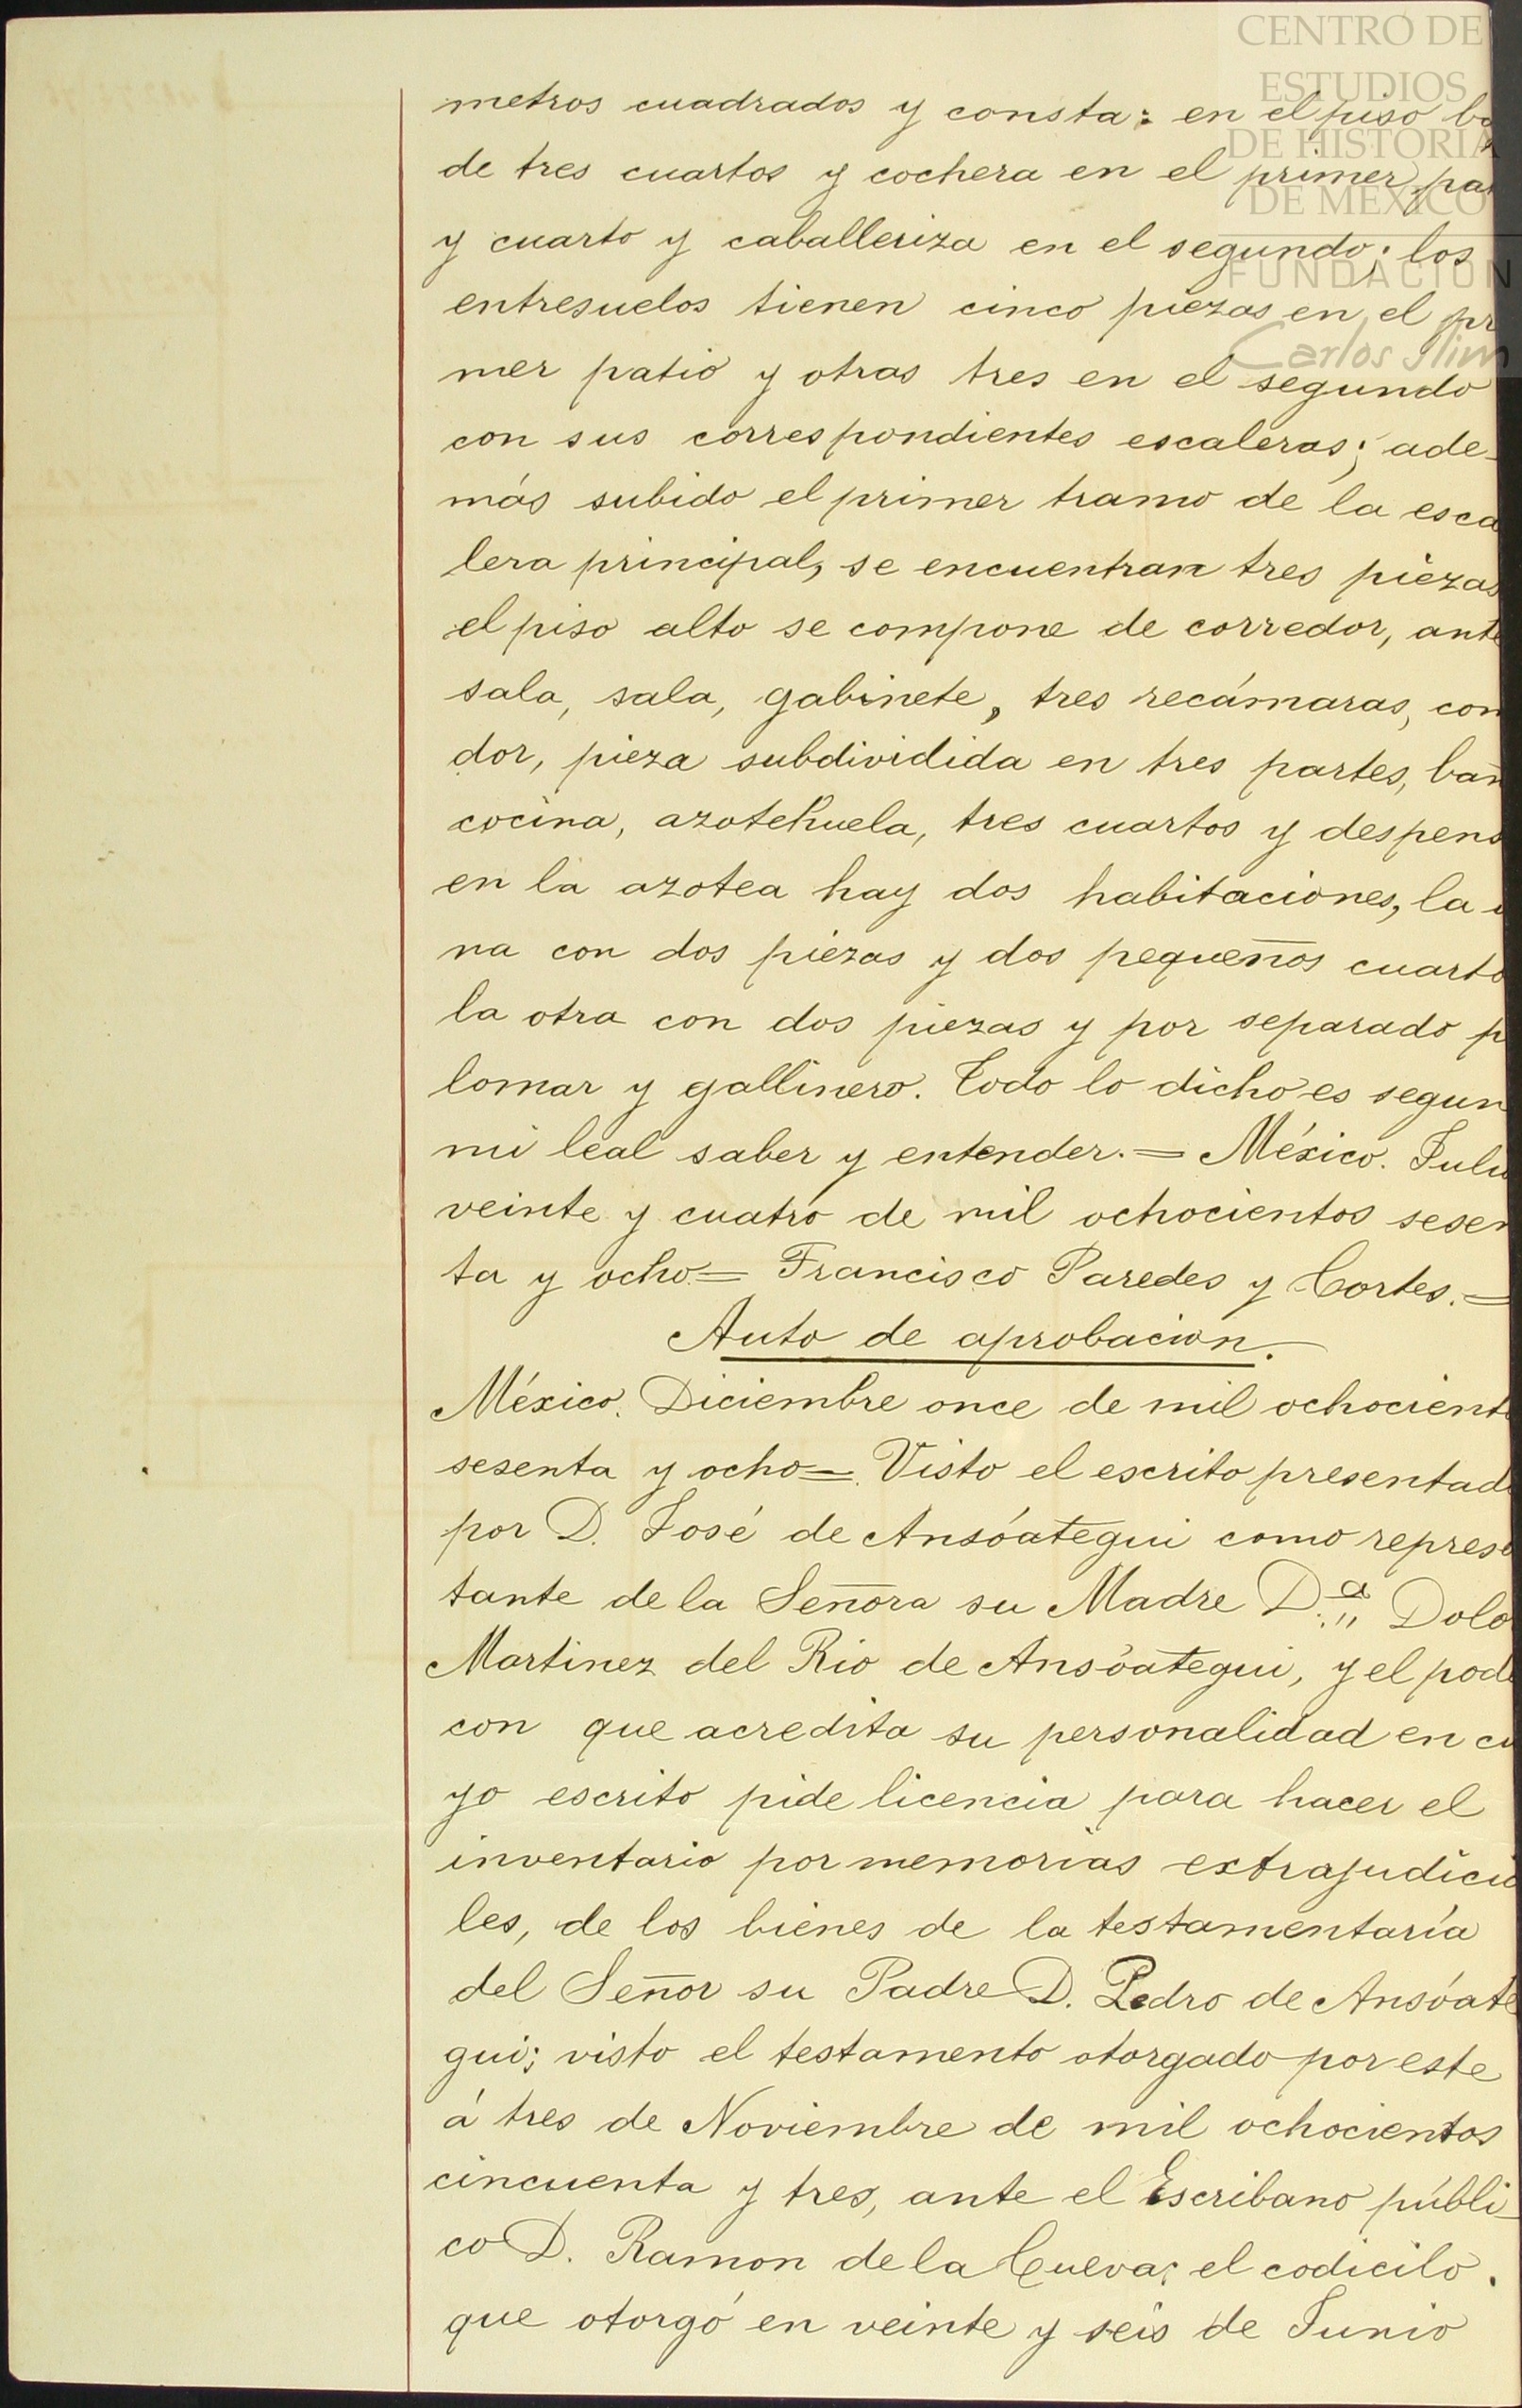 CENTRO DE
ESTUDIOS
DE HISTORIA
DE MEXICO
FUNDACION
Carlos Slim
metros cuadrados y consta: en el piso ba
de tres cuartos y cochera en el primer pa
y cuarto y caballeriza en el segundo; los
entresuelos tienen cinco piezas en el pr
mer patio y otras tres en el segundo
con sus correspondientes escaleras; ade-
más subido el primer tramo de la esca
lera principal, se encuentran tres piezas
el piso alto se compone de corredor, ante
sala, sala, gabinete, tres recámaras, com
dor, pieza subdividida en tres partes, bañ
cocina, azotehuela, tres cuartos y despens
en la azotea hay dos habitaciones, la u
na con dos piezas y dos pequeños cuarto
la otra con dos piezas y por separado p
lomar y gallinero. Todo lo dicho es segun
mi leal saber y entender.= México. Juli
veinte y cuatro de mil ochocientos sesen
ta y ocho= Francisco Paredes y Cortes.=
Auto de aprobacion.
México. Diciembre once de mil ochociento
sesenta y ocho=. Visto el escrito presentad
por D. José de Ansóategui como represe
tante de la Señora su Madre D.ª Dolo
Martinez del Rio de Ansóategui, y el pode
con que acredita su personalidad en cu
yo escrito pide licencia para hacer el
inventario por memorias extrajudicia
les, de los bienes de la testamentaría
del Señor su Padre D. Pedro de Ansóate
gui; visto el testamento otorgado por este
á tres de Noviembre de mil ochocientos
cincuenta y tres, ante el Escribano públi-
co D. Ramon de la Cueva; el codicilo
que otorgó en veinte y seis de Junio